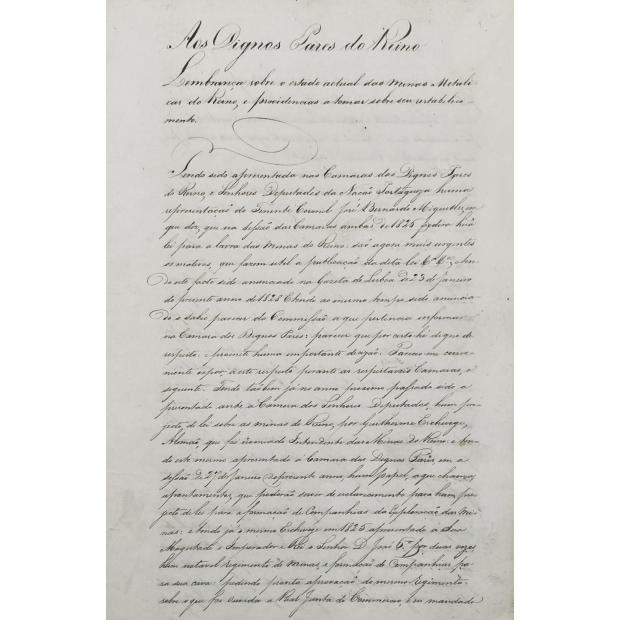 Aos Dignos Pares do Reino
Lembrança sobre o estado actual das Minas Metali-
cas do Reino, e providencias a tomar sobre seu restabeleci-
mento.
Tendo sido apresentada nas Camaras dos Dignos Pares
do Reino, e Senhores Deputados da Nação Portugueza huma
representação do Tenente Coronel José Bernardo Miguel, em
que diz, que na sessão das Camaras ambas de 1825 pedira huã
lei para a lavra das Minas do Reino: são agora mais urgentes
os motivos, que fazem util a publicação da dita lei &ª &ª; Sen-
do este facto sido anunciado na Gazeta de Lisboa de 23 de Janeiro
do presente anno de 1828 E tendo ao mesmo tempo sido anuncia-
do o sabio parecer da Commissão a que pertencia informar
na Camara dos Dignos Pares: parecer que por certo hé digno de
respeito, e promete huma importante
mente expor, a este respeito perante as respeitaveis Camaras, o
seguinte. Tendo tãobem já no anno proximo passado sido a-
presentado ante a Camera dos Senhores Deputados, hum pro-
jecto de lei sobre as minas do Reino, por Guilherme Eschwege,
Alemão, que foi nomeado Intendente das Minas do Reino: e ten-
do este mesmo apresentado á Camara dos Dignos Pares, em a
sessão de 27 de Janeiro do presente anno, hum papel, a que chamou
apontamentos, que poderão servir de esclarecimento para hum pro-
jecto de lei para a formação de Companhias da Exploração das Mi-
nas: e tendo já o mesmo Eschwege em 1825 apresentado a Sua
Magestade o Imperador e Rei o Senhor D. João 6º por duas vezes
hum notavel regimento de minas, e formação de Companhias pa-
ra sua cava: pedindo pronta aprovação do mesmo Regimento,
sobre o que foi ouvida a Real Junta do Commercio, e se mandado